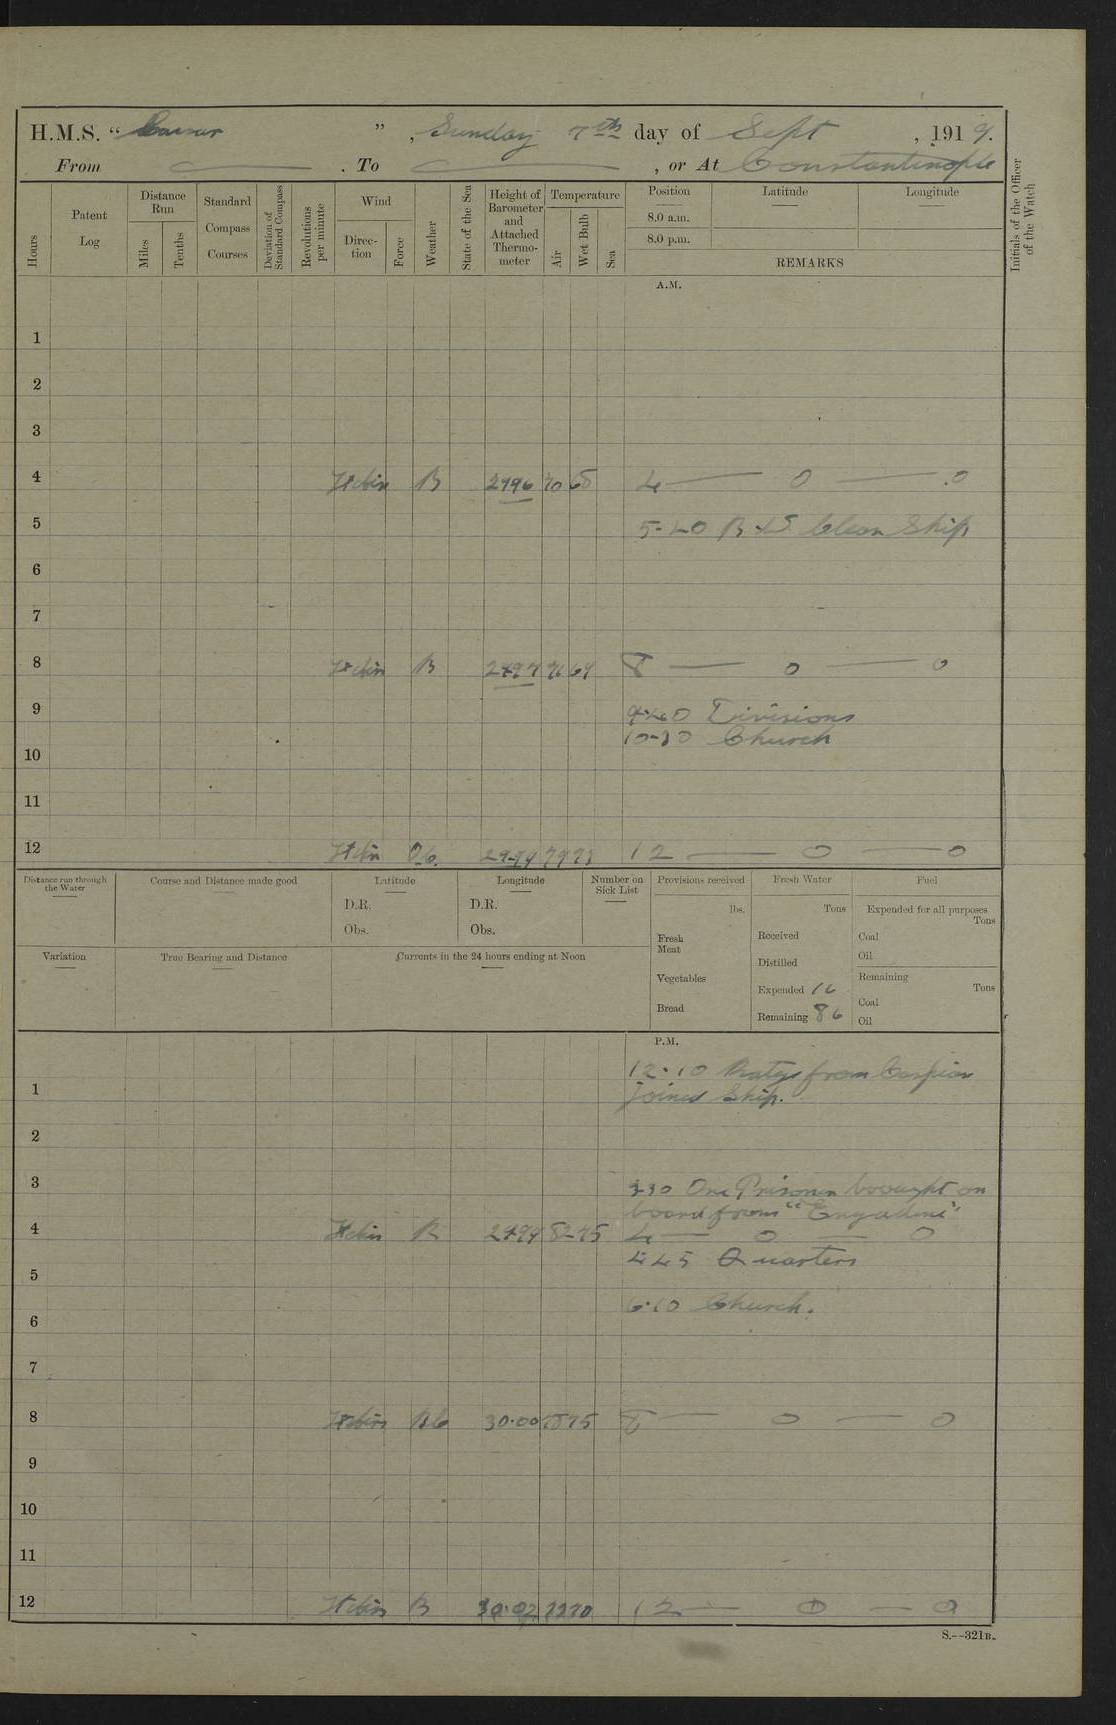 H.M.S. "Caesar", Sunday 7th day of Sept, 1919.
From — . To — , or At Constantinople
Hours
Patent Log
Distance Run
Miles
Tenths
Standard Compass Courses
Deviation of Standard Compass
Revolutions per minute
Wind
Direction
Force
Weather
State of the Sea
Height of Barometer and Attached Thermometer
Temperature
Air
Wet Bulb
Sea
Position
8.0 a.m.
8.0 p.m.
Latitude
Longitude
REMARKS
Initials of the Officer of the Watch
A.M.
1
2
3
4 B 2996 70 65 4 — 0 — 0
5 5-40 Clean Ship
6
7
8 B 2997 69 8 — 0 — 0
9 9.40 Divisions
10-30 Church
10
11
12 29.99 79 73 12 — 0 — 0
Distance run through the Water
Course and Distance made good
Latitude
D.R.
Obs.
Longitude
D.R.
Obs.
Number on Sick List
Provisions received
lbs.
Fresh Meat
Vegetables
Bread
Fresh Water
Tons
Received
Distilled
Expended 16
Remaining 86
Fuel
Expended for all purposes
Tons
Coal
Oil
Remaining
Tons
Coal
Oil
Variation
True Bearing and Distance
Currents in the 24 hours ending at Noon
P.M.
12.10 from Caspian
1 joined Ship.
2
3 3.30 One Prisoner brought on
board from "Engadine"
4 B 2999 82 75 4 — 0 — 0
4 45 Quarters
5
6.10 Church.
6
7
8 Bc 30.00 75 8 — 0 — 0
9
10
11
12 B 30.02 70 12 — 0 — 0
S.--321B.